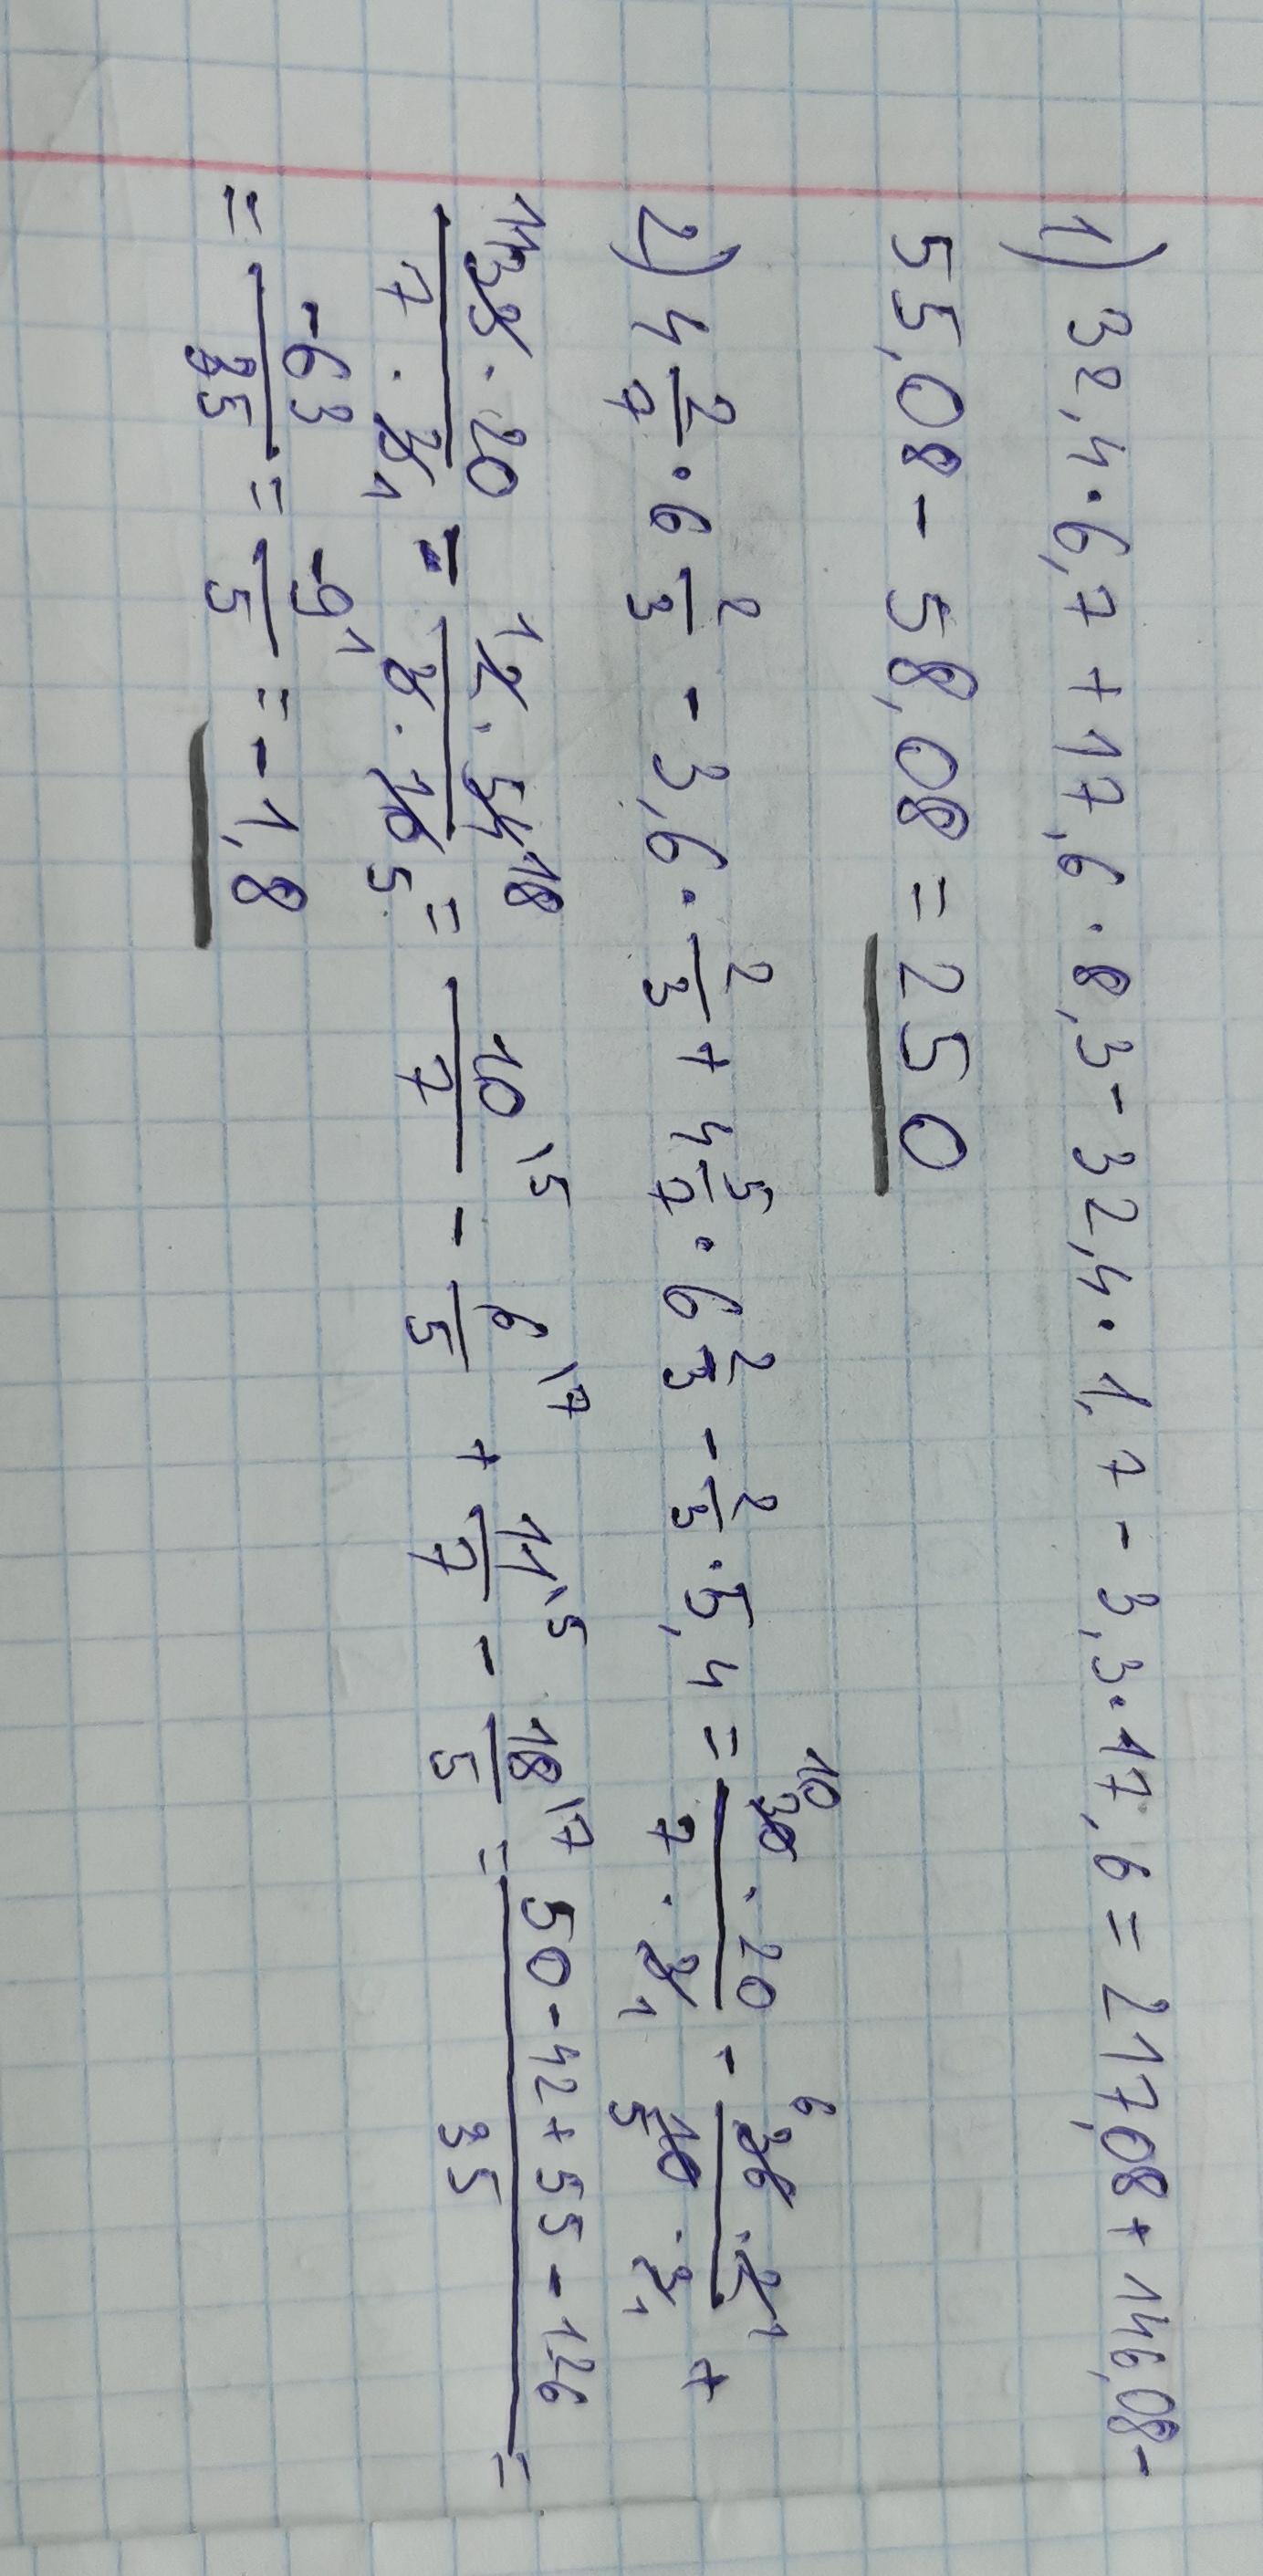 1) 32,4 · 6,7 + 17,6 · 8,3 - 32,4 · 1,7 - 3,3 · 17,6 = 217,08 + 146,08 -
55,08 - 58,08 = 250
2) 4 2/7 · 6 2/3 - 3,6 · 2/3 + 4 5/7 · 6 2/3 - 2/3 · 5,4 = 10 30 · 20 / 7 · 3 1 - 6 36 · 2 1 / 5 10 · 3 1 +
11 33 · 20 / 7 · 3 1 = 1 2 · 54 18 / 1 3 · 10 5 = 10 \5 / 7 - 6 \7 / 5 + 11 \5 / 7 - 18 \7 / 5 = 50 - 42 + 55 - 126 / 35 =
= -63 / 35 = -9 / 5 = -1,8